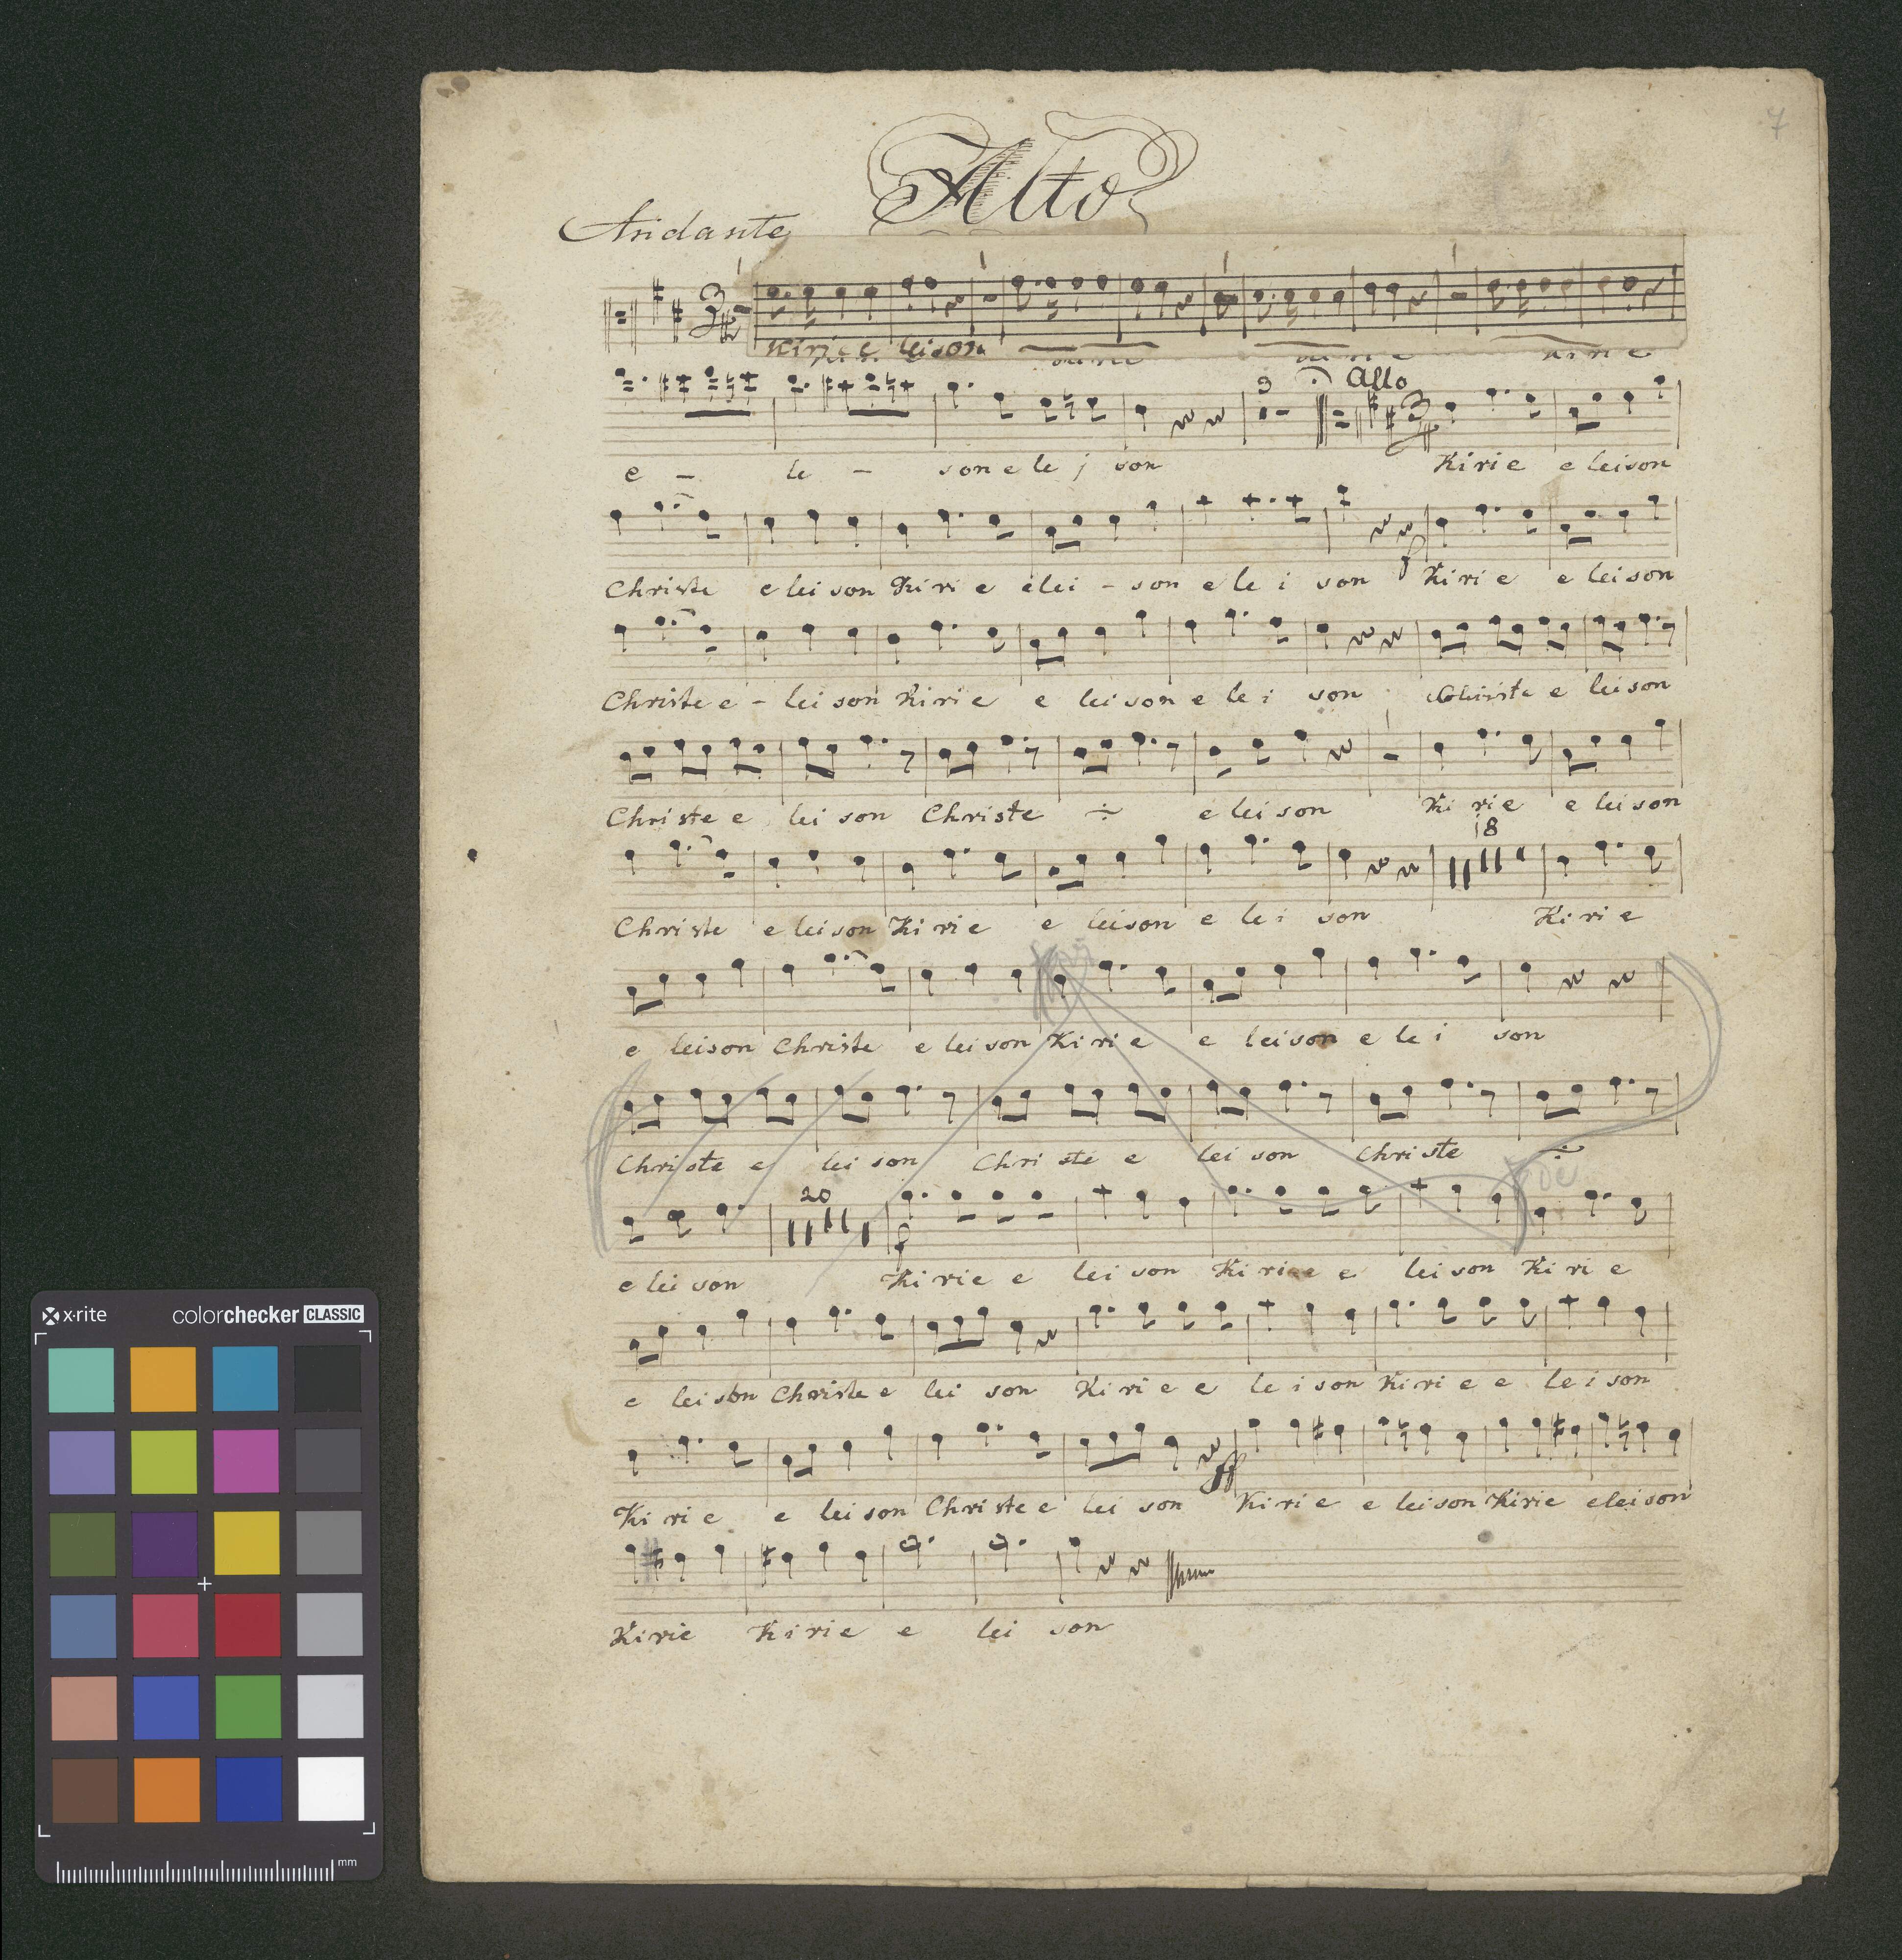 7
Alto
Andante
Kirie eleison
Allo
3
e - le - son e le j son Kirie e leison
Christe e lei son Kirie elei - son e le i son Kirie e leison
Christe e - lei son Kirie e lei son e le i son e leison
Christe e lei son Christe ÷ e lei son Ki rie e leison
18
Christe e leison Kirie e leison e le i son Ki ri e
e leison Christe e lei son Ki ri e e leison e le i son
Christe e lei son Chri ste e lei son Christe ÷
20
e lei son Ki rie e lei son Ki rie e lei son Ki ri e
e lei son Christe e lei son Ki ri e e le i son Ki ri e e le i son
ff
Ki ri e e lei son Christe e lei son Kirie e leison Kirie eleison
Kirie Kirie e lei son
x-rite colorchecker CLASSIC
mm